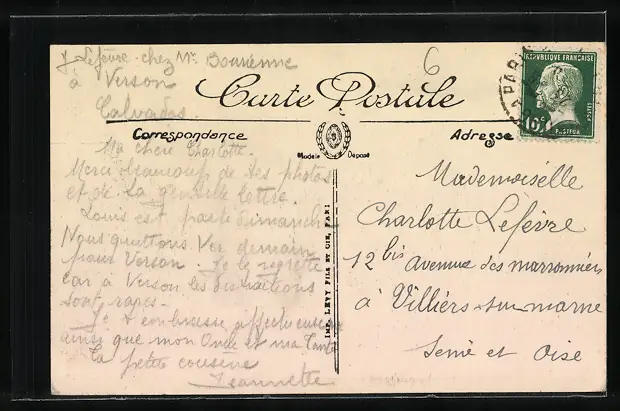 J Lefèvre chez Mr Bourienne
à Verson
Calvados
6
Carte Postale
Correspondance
Adresse
Modèle Déposé
REPUBLIQUE FRANÇAISE
10c
POSTES
PASTEUR
PARIS
Ma chère Charlotte.
Merci beaucoup de tes photos
et de ta gentille lettre.
Louis est partie dimanche
Nous quittons Ver demain
pour Verson. Je le regrette
car à Verson les distractions
sont rares.
Je t'embrasse affectueusement
ainsi que mon Oncle et ma Tante
Ta petite cousine
Jeannette
IMP. LEVY FILS ET CIE, PARIS
Mademoiselle
Charlotte Lefèvre
12 bis avenue des marronniers
à Villiers-sur-marne
Seine et Oise